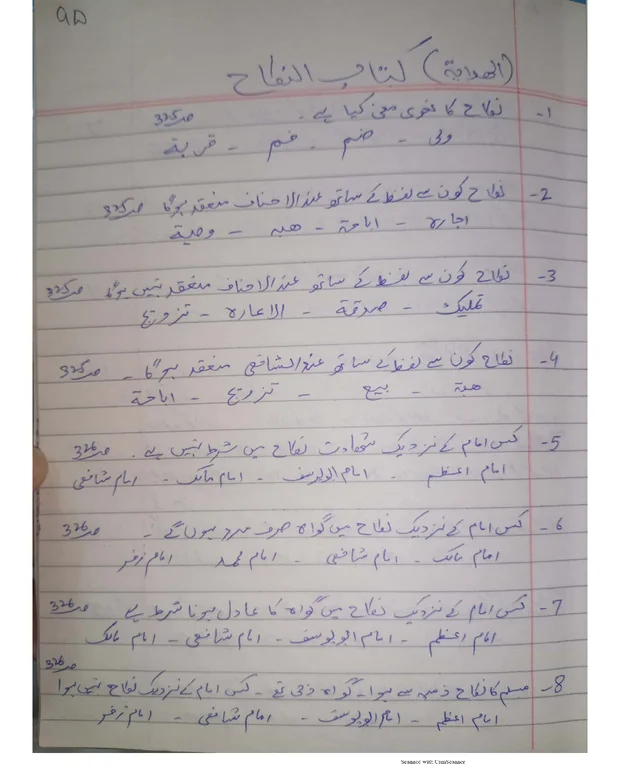 9D
(الهداية) کتاب النکاح
1- نکاح کا لغوی معنی کیا ہے۔ صـ325
وطی - ضم - فم - قربة
2- نکاح کون سے لفظ کے ساتھ عند الاحناف منعقد ہوگا صـ325
اجارہ - اباحة - ھبہ - وصیة
3- نکاح کون سے لفظ کے ساتھ عند الاحناف منعقد نہیں ہوگا صـ325
تملیک - صدقة - الاعارہ - تزویج
4- نکاح کون سے لفظ کے ساتھ عند الشافعی منعقد ہوگا - صـ325
ھبة - بیع - تزویج - اباحة
5- کس امام کے نزدیک شھادت نکاح میں شرط نہیں ہے۔ صـ326
امام اعظم - امام ابو یوسف - امام مالک - امام شافعی
6- کس امام کے نزدیک نکاح میں گواہ صرف مرد ہوں گے - صـ326
امام مالک - امام شافعی - امام محمد امام زفر
7- کس امام کے نزدیک نکاح میں گواہ کا عادل ہونا شرط ہے صـ326
امام اعظم - امام ابو یوسف - امام شافعی - امام مالک
صـ326
8- مسلم کا نکاح ذمیہ سے ہوا - گواہ ذمی تھے - کس امام کے نزدیک نکاح نہیں ہوا
امام اعظم - امام ابو یوسف - امام شافعی - امام زفر
Scanned with CamScanner